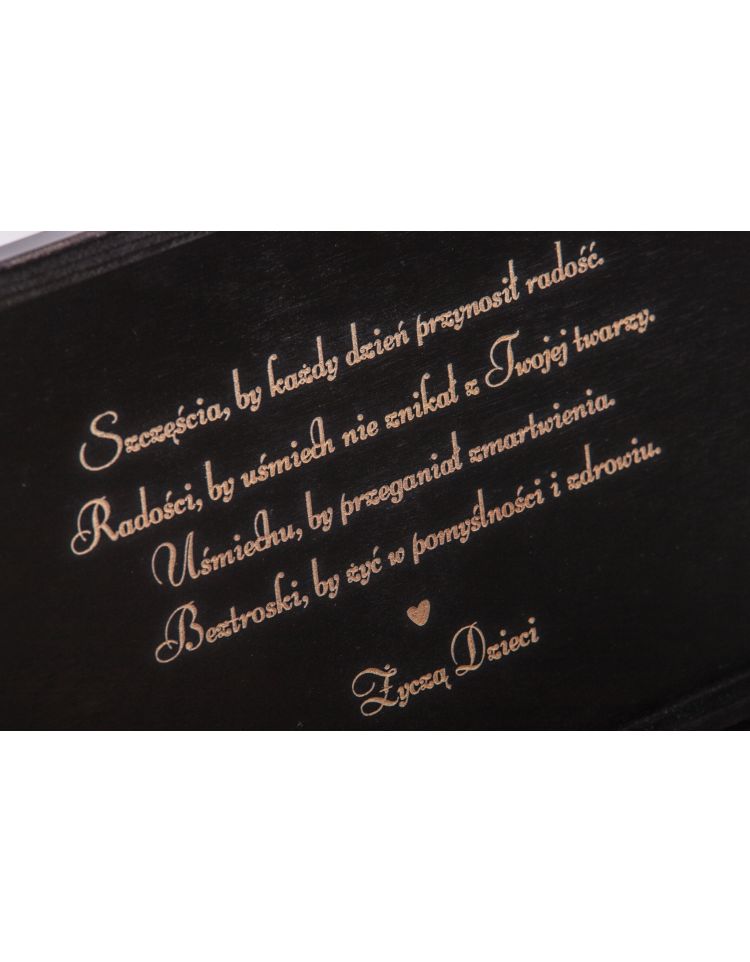 Szczęścia, by każdy dzień przynosił radość.
Radości, by uśmiech nie znikał z Twojej twarzy.
Uśmiechu, by przeganiał zmartwienia.
Beztroski, by żyć w pomyślności i zdrowiu.
Życzą Dzieci